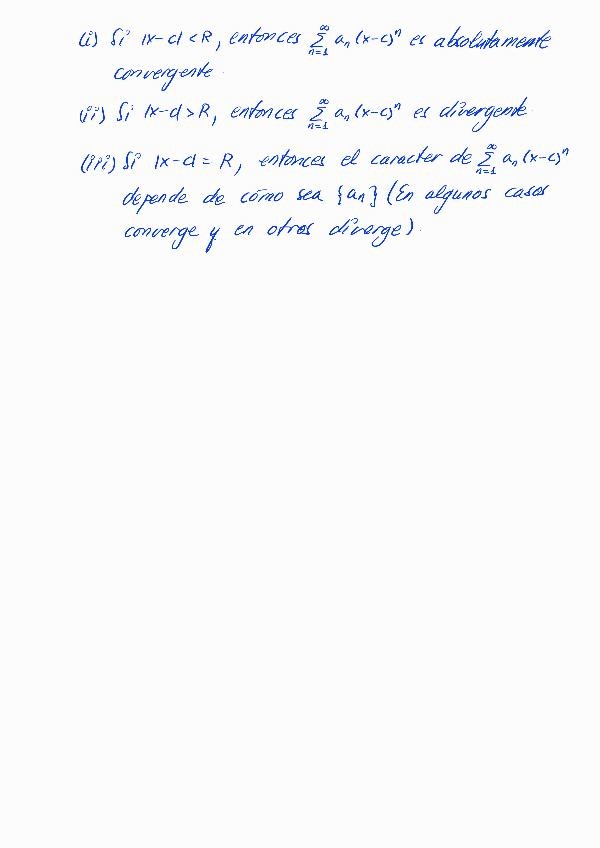 (i) Si |x-c| < R, entonces ∑_{n=1}^{∞} a_n (x-c)^n es absolutamente
convergente.
(ii) Si |x-c| > R, entonces ∑_{n=1}^{∞} a_n (x-c)^n es divergente.
(iii) Si |x-c| = R, entonces el caracter de ∑_{n=1}^{∞} a_n (x-c)^n
depende de cómo sea {a_n} (En algunos casos
converge y en otros diverge).